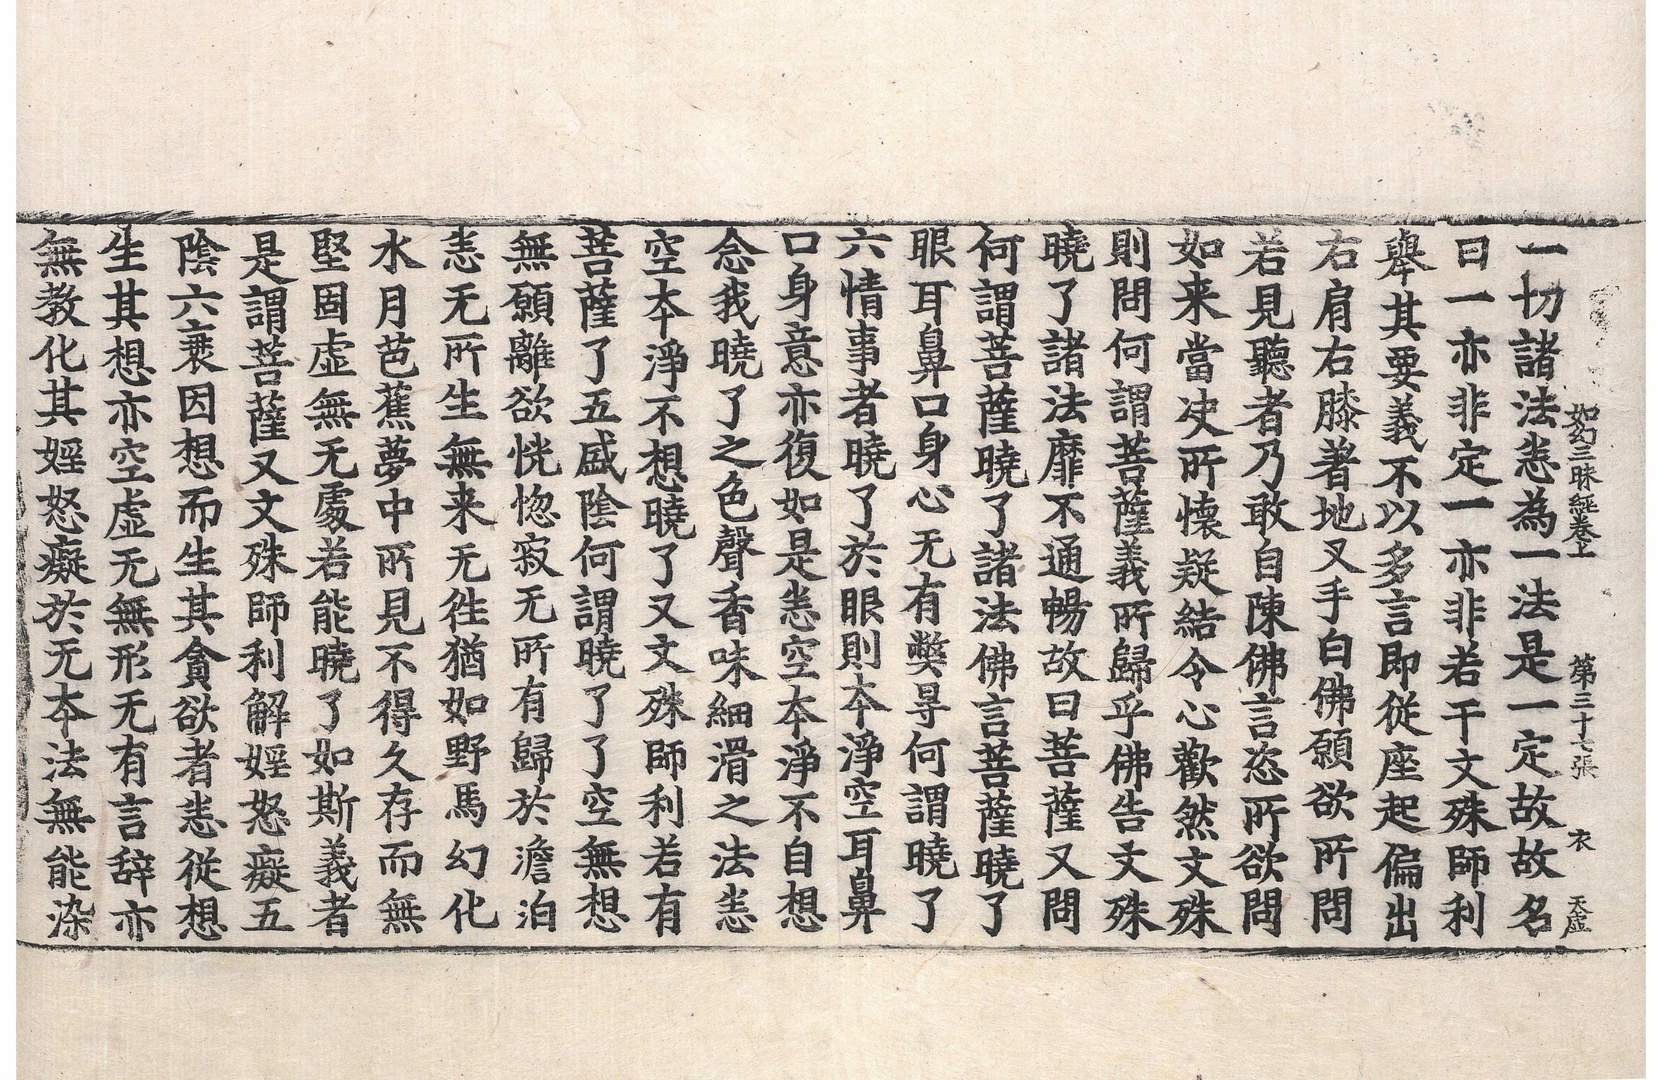 如幻三昧經卷上 第三十七張 衣 天虛
一切諸法悉為一法是一定故故名
曰一亦非定一亦非若干文殊師利
舉其要義不以多言即從座起偏出
右肩右膝著地叉手白佛願欲所問
若見聽者乃敢自陳佛言恣所欲問
如来當决所懷疑結令心歡然文殊
則問何謂菩薩義所歸乎佛告文殊
曉了諸法靡不通暢故曰菩薩又問
何謂菩薩曉了諸法佛言菩薩曉了
眼耳鼻口身心无有弊㝵何謂曉了
六情事者曉了於眼則本淨空耳鼻
口身意亦復如是悉空本淨不自想
念我曉了之色聲香味細滑之法悉
空本淨不想曉了又文殊師利若有
菩薩了五盛陰何謂曉了了空無想
無願離欲恍惚寂无所有歸於澹泊
悉无所生無来无徃猶如野馬幻化
水月芭蕉夢中所見不得久存而無
堅固虛無无處若能曉了如斯義者
是謂菩薩又文殊師利解婬怒癡五
陰六衰因想而生其貪欲者悉從想
生其想亦空虛无無形无有言辞亦
無教化其婬怒癡於无本法無能染